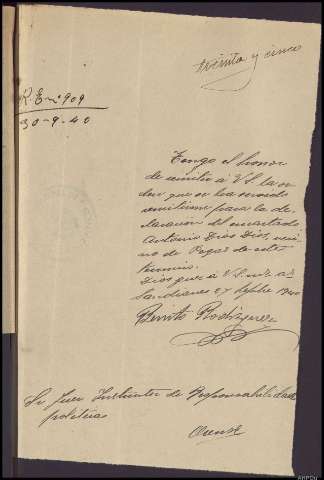 treinta y cinco
R.E nº 909
30-9-40
Tengo el honor
de remitir á V.S. la or
den que se ha servido
remitirme para la de
claración del encartado
Antonio Dios Dios veci
no de Rogas de este
termino.
Dios gue á V.S. m. a.
Sandianes 27 Sptbre 1940
Benito Rodriguez
Sr Juez Instructor de Responsabilidades
politicas
Orense